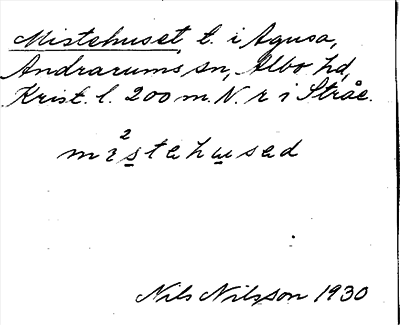 Mistehuset, t. i Agusa,
Andrarums sn, Albo hd,
Krist. l. 200 m. N. r i Stråe.
2
mistehusad
Nils Nilsson 1930